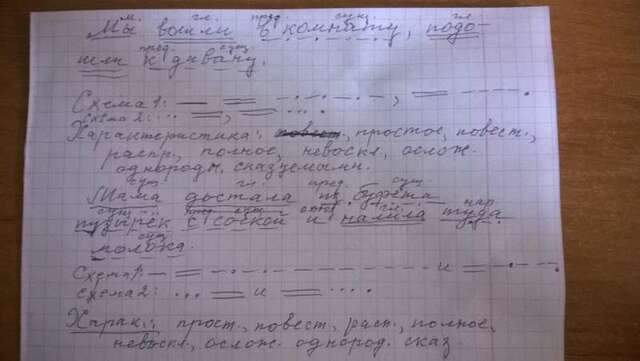 м. гл. пред. сущ. гл.
Мы вошли в комнату, подо-
пред. сущ.
шли к дивану.
Схема 1:
схема 2:
Характеристика:, простое, повест.,
распр., полное, невоскл., ослож.
однородн. сказуемыми.
сущ. гл. пред. сущ.
Мама достала из буфета
сущ. сущ. гл. нар.
пузырёк с соской и налила туда
сущ.
молока.
Схема 1: и
схема 2: и
Харак.: прост., повест., расп., полное,
невоскл., ослож. однород. сказ.